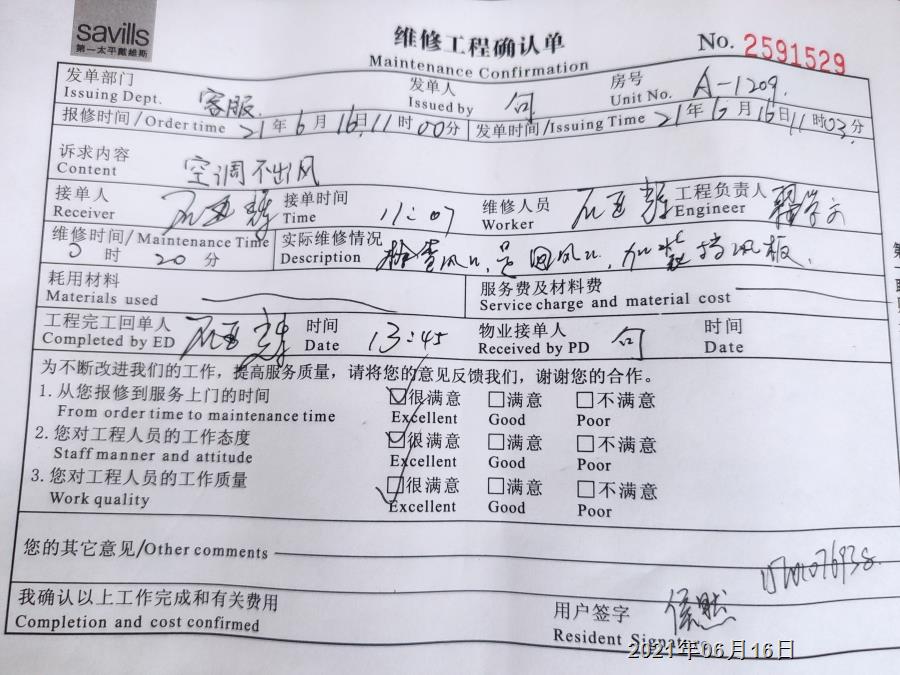 savills
第一太平戴维斯
维修工程确认单
Maintenance Confirmation
No. 2591529
发单部门 客服 发单人 句 房号 A-1209.
Issuing Dept. Issued by Unit No.
报修时间/Order time 21年6月16日11时00分 发单时间/Issuing Time 21年6月16日11时03分
诉求内容 空调不出风
Content
接单人 接单时间 11:07 维修人员 工程负责人
Receiver Time Worker Engineer
维修时间/Maintenance Time 实际维修情况 检查风口,是回风口,加装挡风板.
时 20分 Description
耗用材料 服务费及材料费
Materials used Service charge and material cost
工程完工回单人 时间 13:45 物业接单人 句 时间
Completed by ED Date Received by PD Date
为不断改进我们的工作,提高服务质量,请将您的意见反馈我们,谢谢您的合作。
1. 从您报修到服务上门的时间 很满意 满意 不满意
From order time to maintenance time Excellent Good Poor
2. 您对工程人员的工作态度 很满意 满意 不满意
Staff manner and attitude Excellent Good Poor
3. 您对工程人员的工作质量 很满意 满意 不满意
Work quality Excellent Good Poor
您的其它意见/Other comments
我确认以上工作完成和有关费用 用户签字
Completion and cost confirmed Resident Signature
2021年06月16日